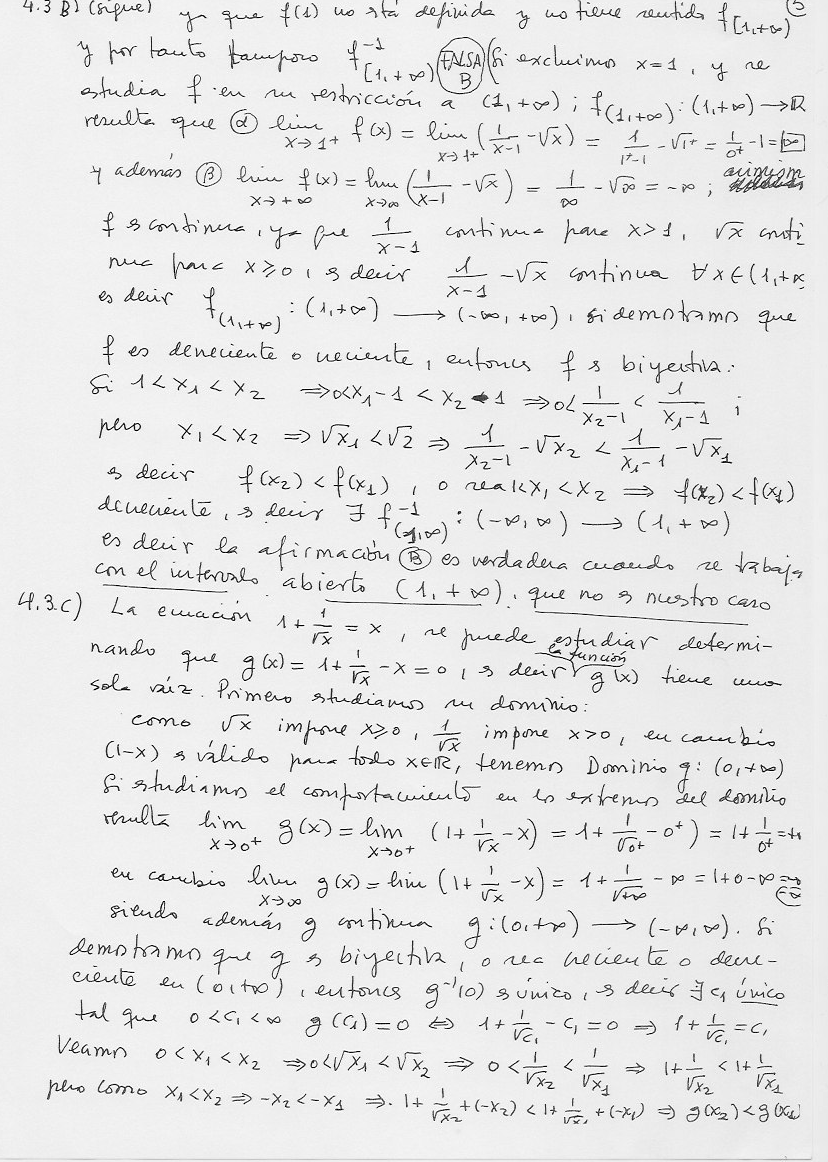 4.3 B) (sigue) ya que f(1) no está definida y no tiene sentido f[1,+∞)
y por tanto tampoco f⁻¹[1,+∞) (FALSA B) (Si excluimos x=1, y se
estudia f en su restricción a (1,+∞); f(1,+∞): (1,+∞) → ℝ
resulta que (α) lim x→1+ f(x) = lim x→1+ (1/(x-1) - √x) = 1/(1⁺-1) - √1⁺ = 1/0⁺ - 1 = ∞
y además (β) lim x→+∞ f(x) = lim x→∞ (1/(x-1) - √x) = 1/∞ - √∞ = -∞;
f es continua, ya que 1/(x-1) continua para x>1, √x conti
nua para x≥0, es decir 1/(x-1) - √x continua ∀x∈(1,+∞
es decir f(1,+∞): (1,+∞) → (-∞,+∞), si demostramos que
f es decreciente o creciente, entonces f es biyectiva:
Si 1<x₁<x₂ ⇒ 0<x₁-1 < x₂-1 ⇒ 0< 1/(x₂-1) < 1/(x₁-1) ;
pero x₁<x₂ ⇒ √x₁<√2 ⇒ 1/(x₂-1) - √x₂ < 1/(x₁-1) - √x₁
es decir f(x₂) < f(x₁), o sea 1<x₁<x₂ ⇒ f(x₂)<f(x₁)
decreciente, es decir ∃ f⁻¹(1,∞): (-∞,∞) → (1,+∞)
es decir la afirmación (B) es verdadera cuando se trabaja
con el intervalo abierto (1,+∞), que no es nuestro caso
4.3.c) La ecuación 1+1/√x = x, se puede estudiar determi-
nando que g(x) = 1+1/√x - x = 0, es decir la función g(x) tiene una
sola raíz. Primero estudiamos su dominio:
como √x impone x≥0, 1/√x impone x>0, en cambio
(1-x) es válido para todo x∈ℝ, tenemos Dominio g: (0,+∞)
Si estudiamos el comportamiento en los extremos del dominio
resulta lim x→0⁺ g(x) = lim x→0⁺ (1+1/√x - x) = 1+1/√0⁺ - 0⁺) = 1+1/0⁺ = +∞
en cambio lim x→∞ g(x) = lim (1+1/√x - x) = 1+1/√+∞ - ∞ = 1+0-∞ = -∞
siendo además g continua g:(0,+∞) → (-∞,∞). Si
demostramos que g es biyectiva, o sea creciente o decre-
ciente en (0,+∞), entonces g⁻¹(0) es único, es decir ∃ c₁ único
tal que 0<c₁<∞ g(c₁)=0 ⇔ 1+1/√c₁ - c₁=0 ⇒ 1+1/√c₁=c₁
Veamos 0<x₁<x₂ ⇒ 0<√x₁<√x₂ ⇒ 0<1/√x₂<1/√x₁ ⇒ 1+1/√x₂<1+1/√x₁
pero como x₁<x₂ ⇒ -x₂<-x₁ ⇒ 1+1/√x₂+(-x₂)<1+1/√x₁+(-x₁) ⇒ g(x₂)<g(x₁)